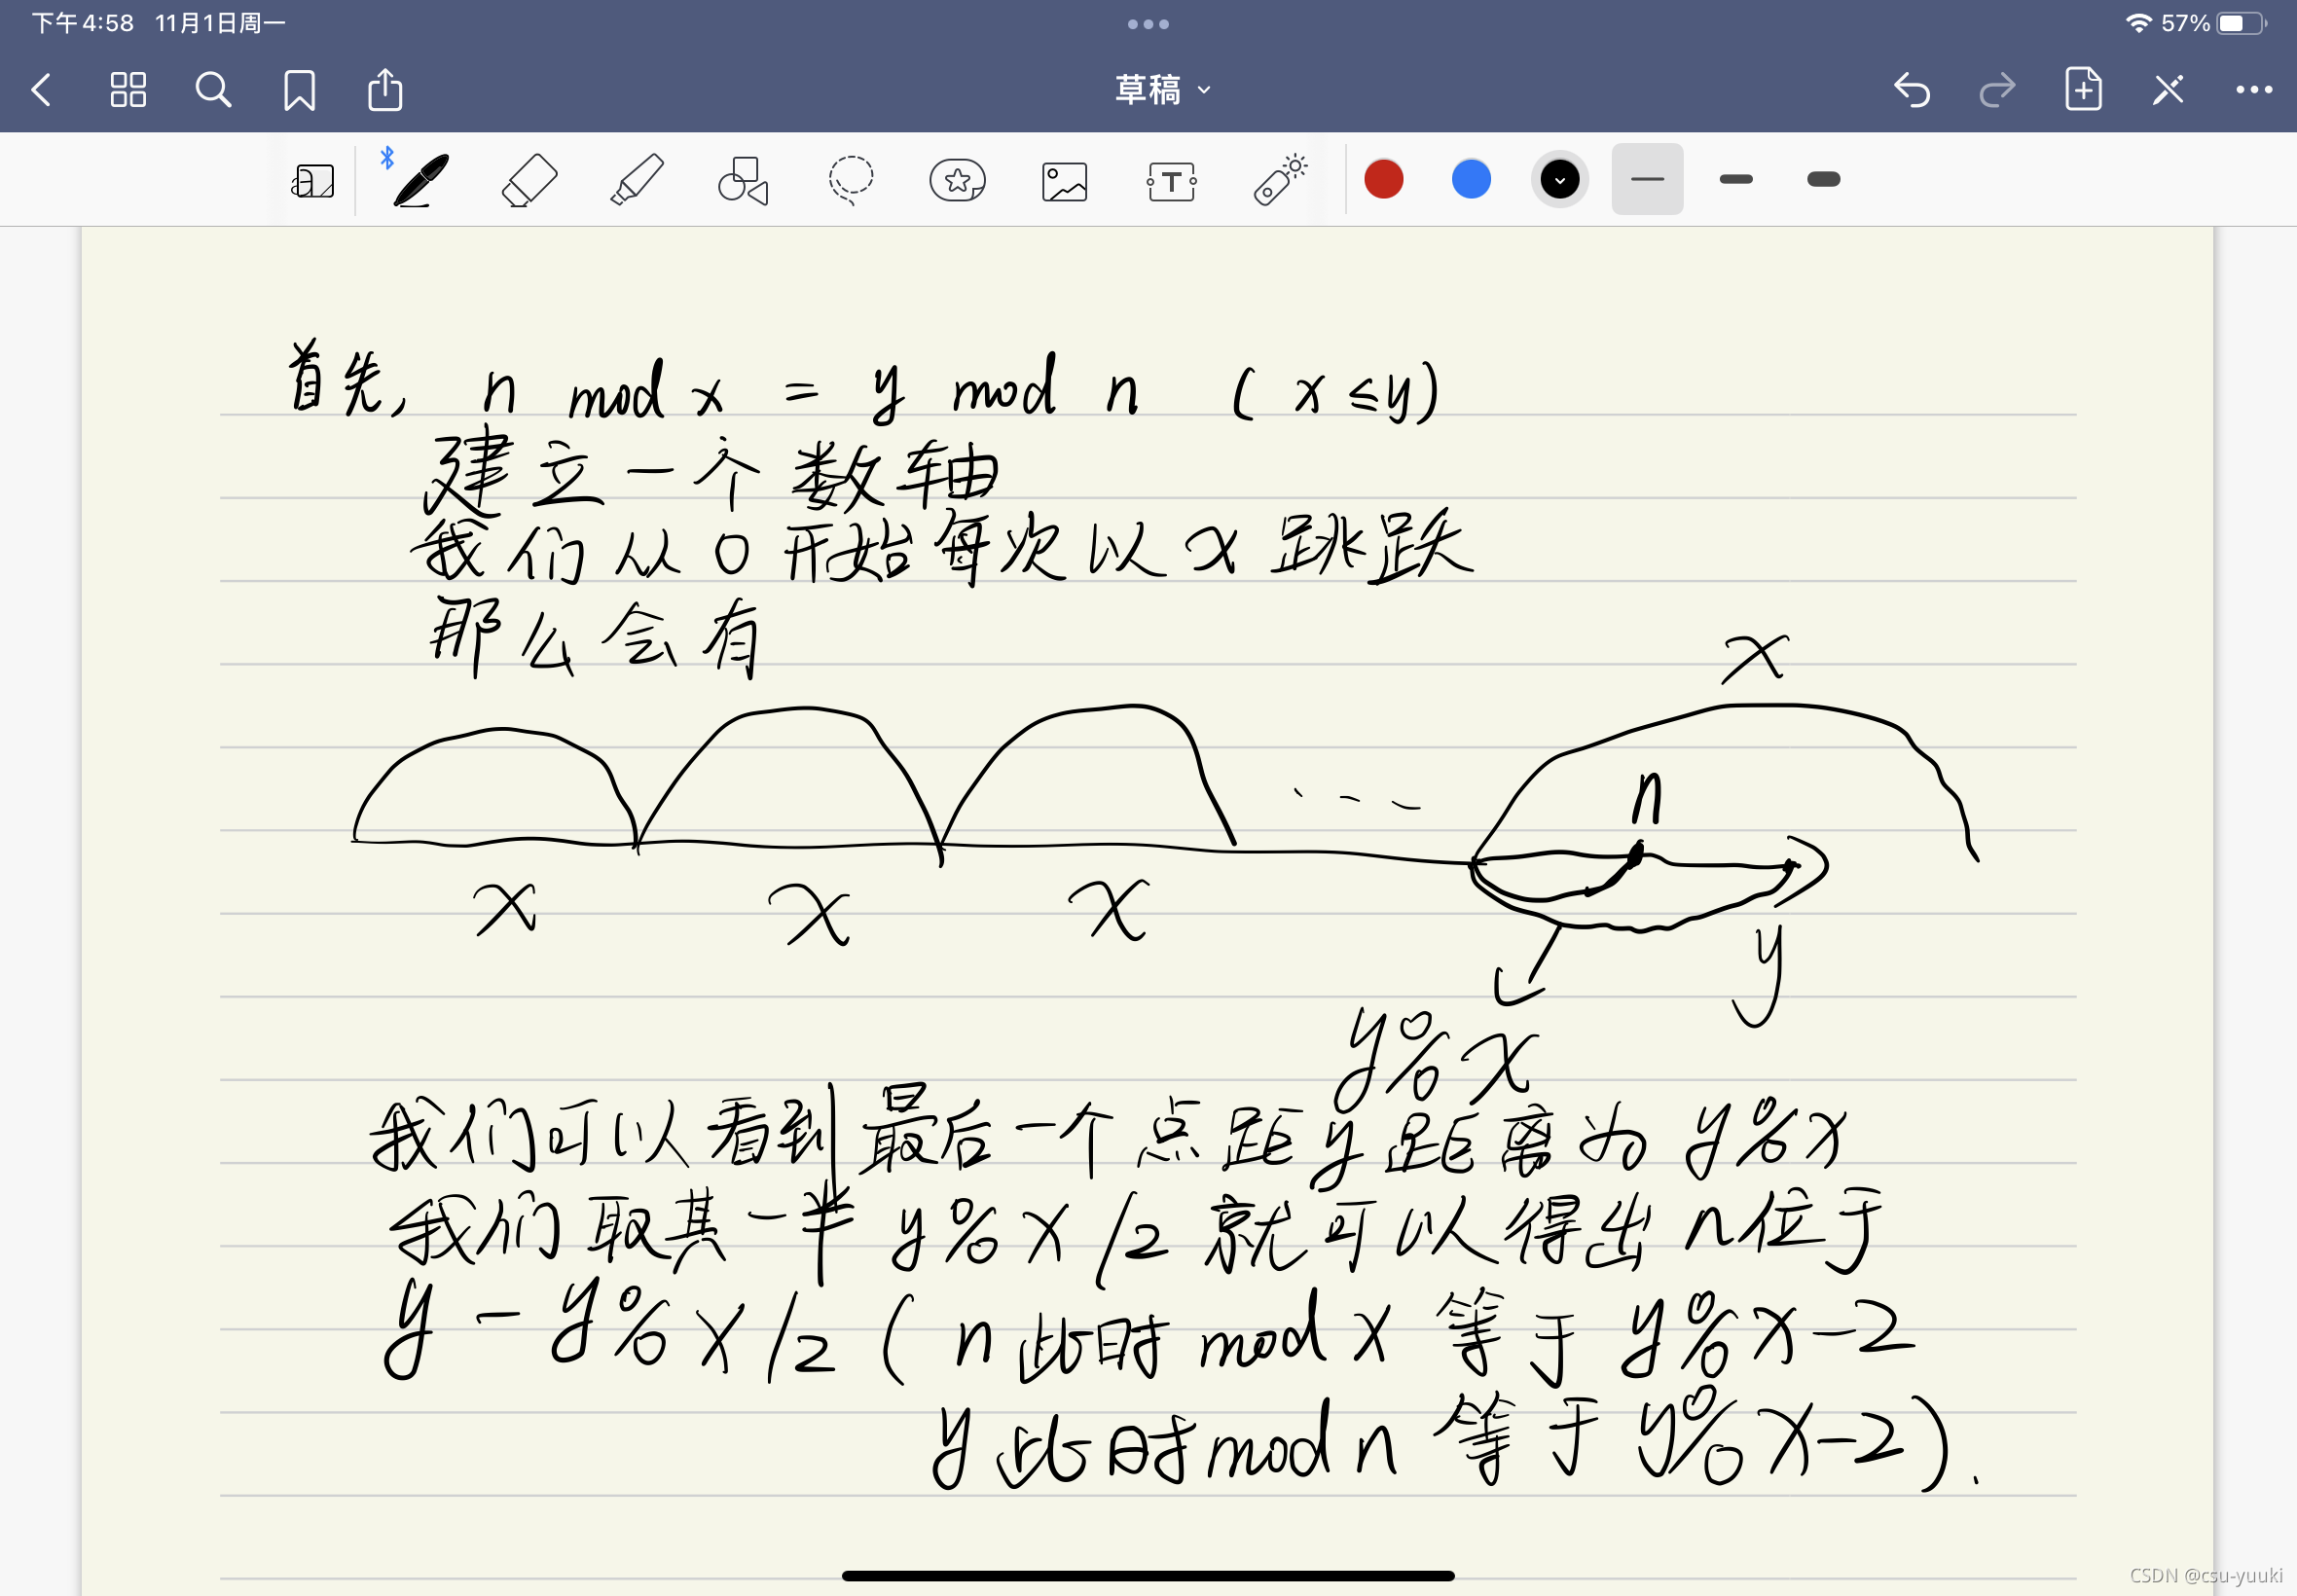 下午4:58 11月1日周一
57%
草稿
首先, n mod x = y mod n ( x ≤ y)
建立一个数轴
我们从0开始每次以x跳跃
那么会有
x
n
x x x
y
y%x
我们可以看到最后一个点距y距离为 y%x
我们取其一半 y%x/2 就可以得出 n位于
y - y%x/2 ( n此时mod x 等于 y%x-2
y此时mod n 等于 y%x-2).
CSDN @csu-yuuki